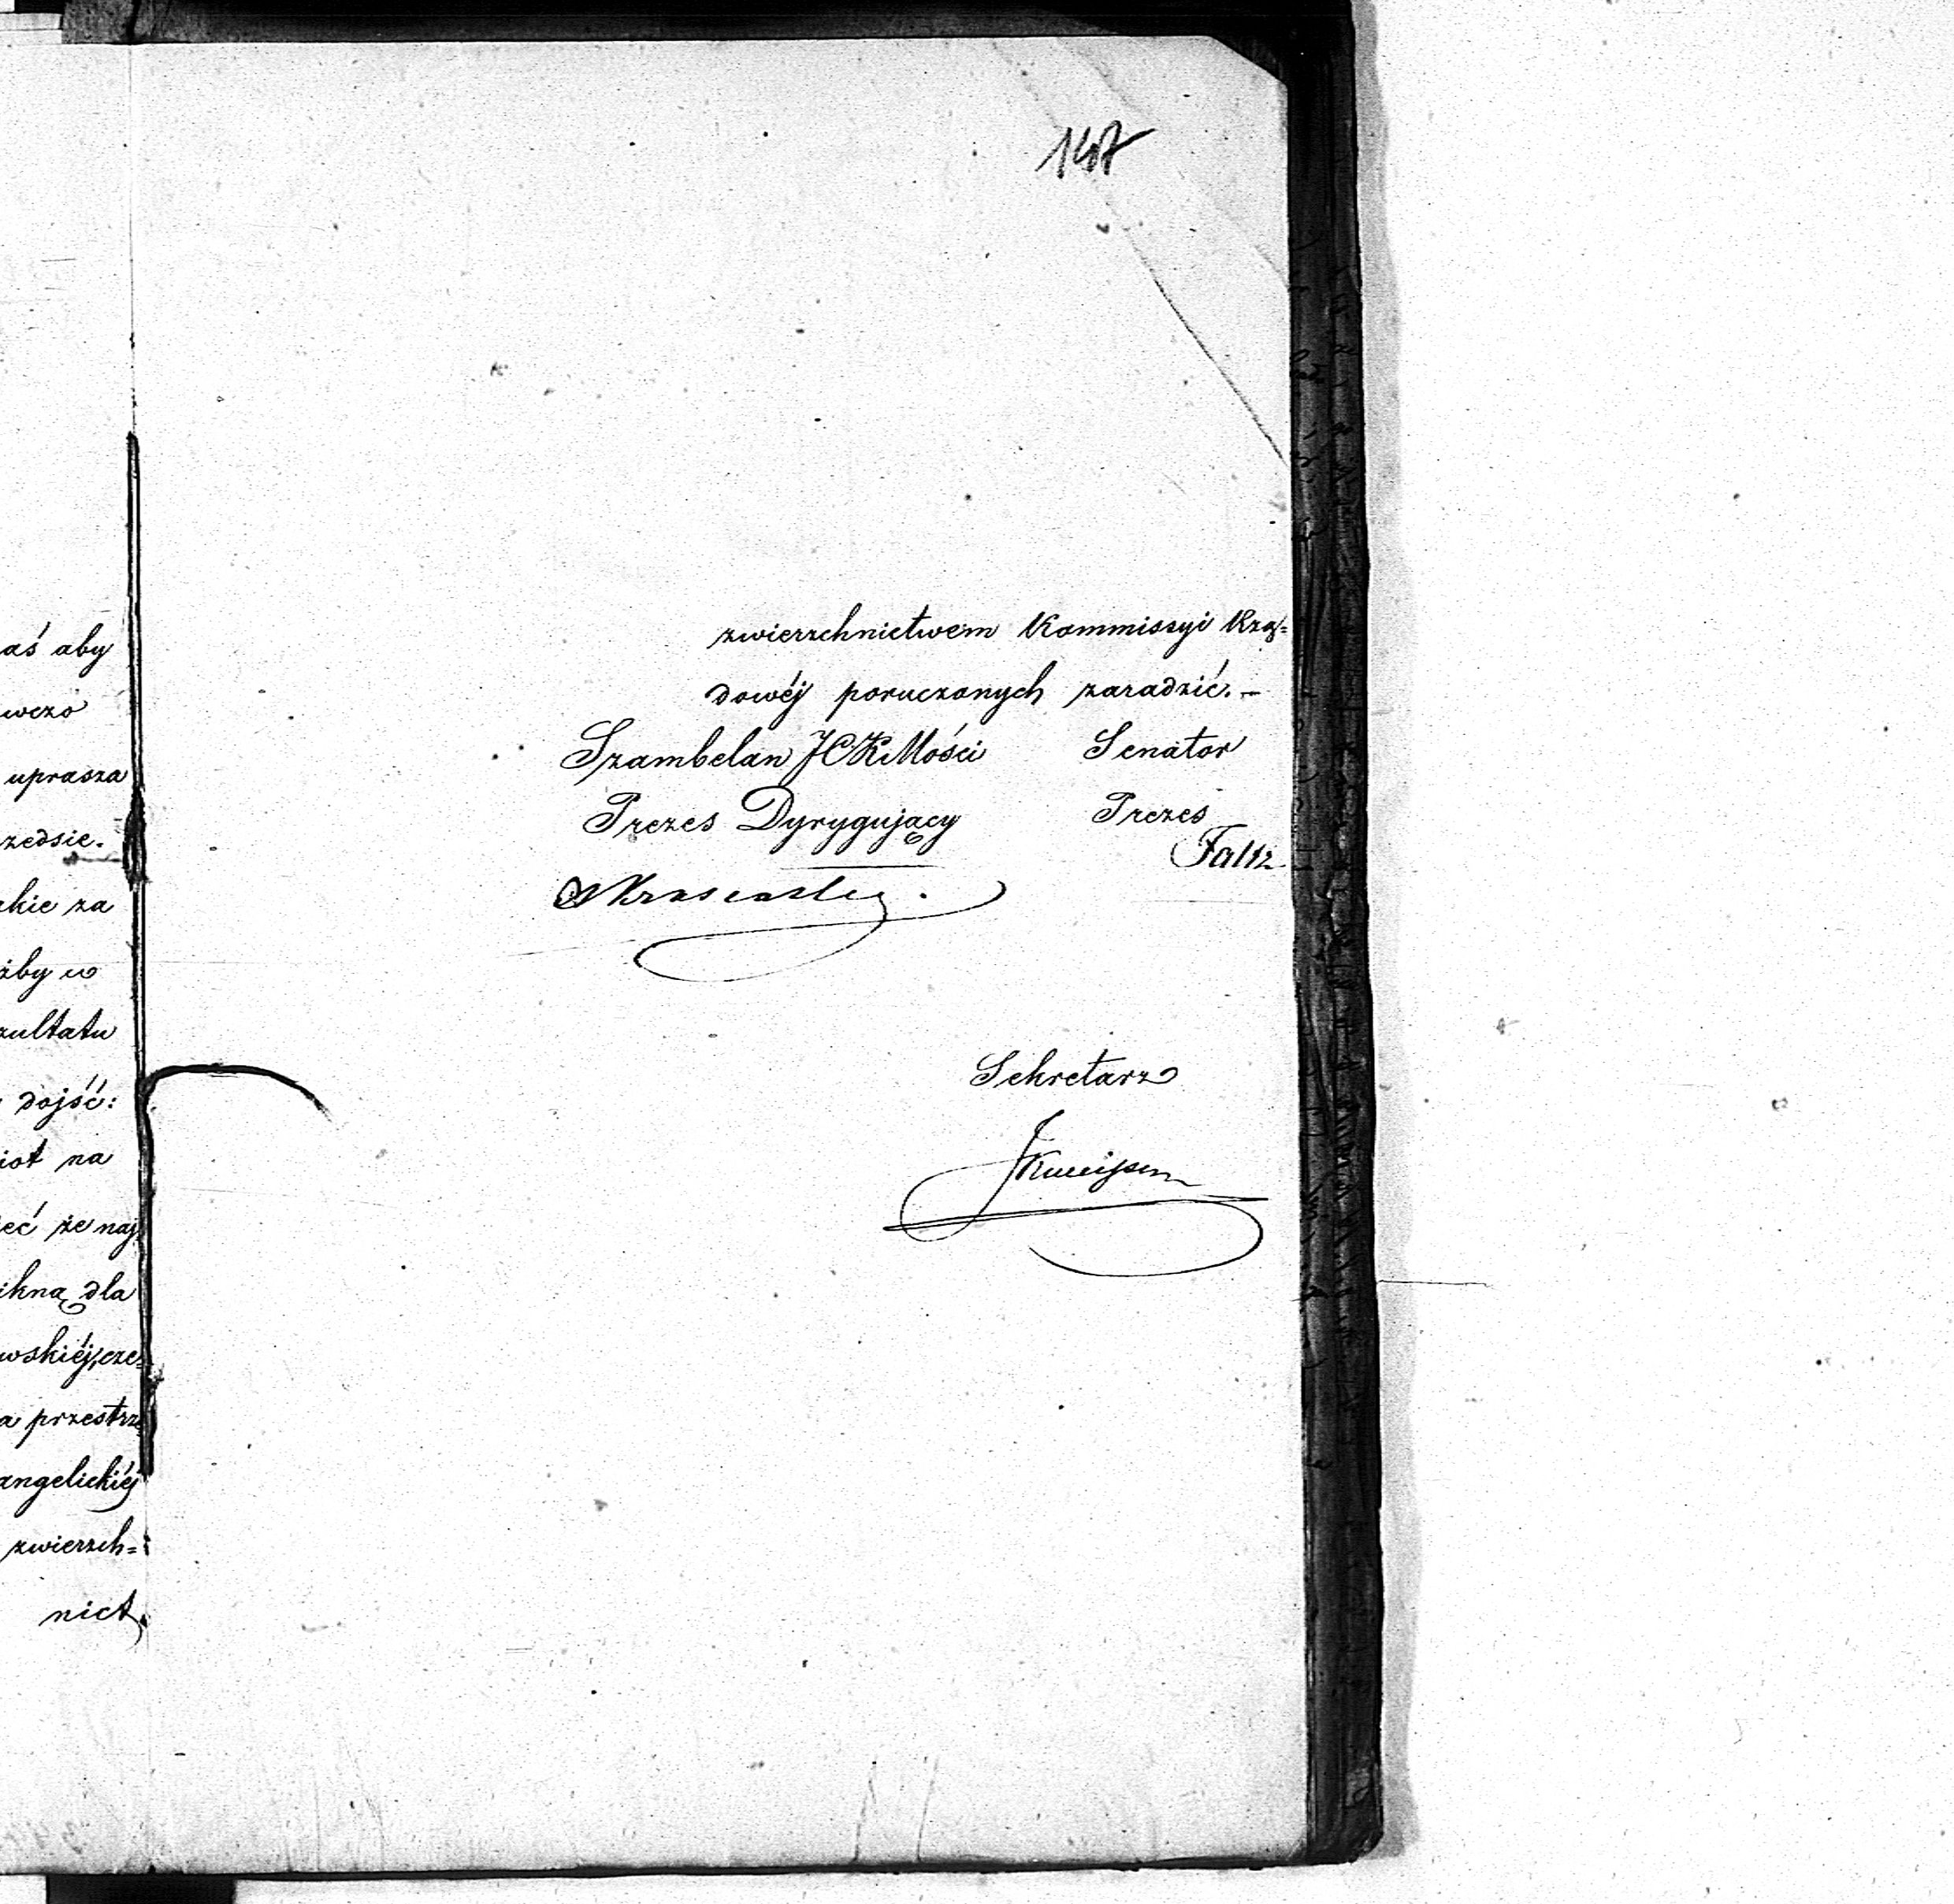 147
aś aby
wczo
uprasza
zedsie.
akie za
żby w
zultatu
dojść:
iot na
eć że naj
ikną dla
wskiéj, cze=
a przestrz
angelickiéj
zwierzch=
nict.
zwierzchnictwem Kommissyi Rzą=
dowéj poruczonych zaradzić. –
Szambelan JCKMości Senator
Prezes Dyrygujący Prezes
Faltz
Sekretarz